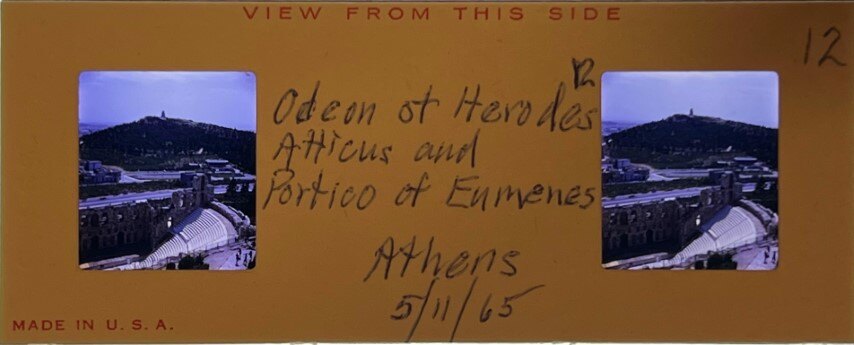 VIEW FROM THIS SIDE
12
12
Odeon of Herodes
Atticus and
Portico of Eumenes
Athens
5/11/65
MADE IN U.S.A.